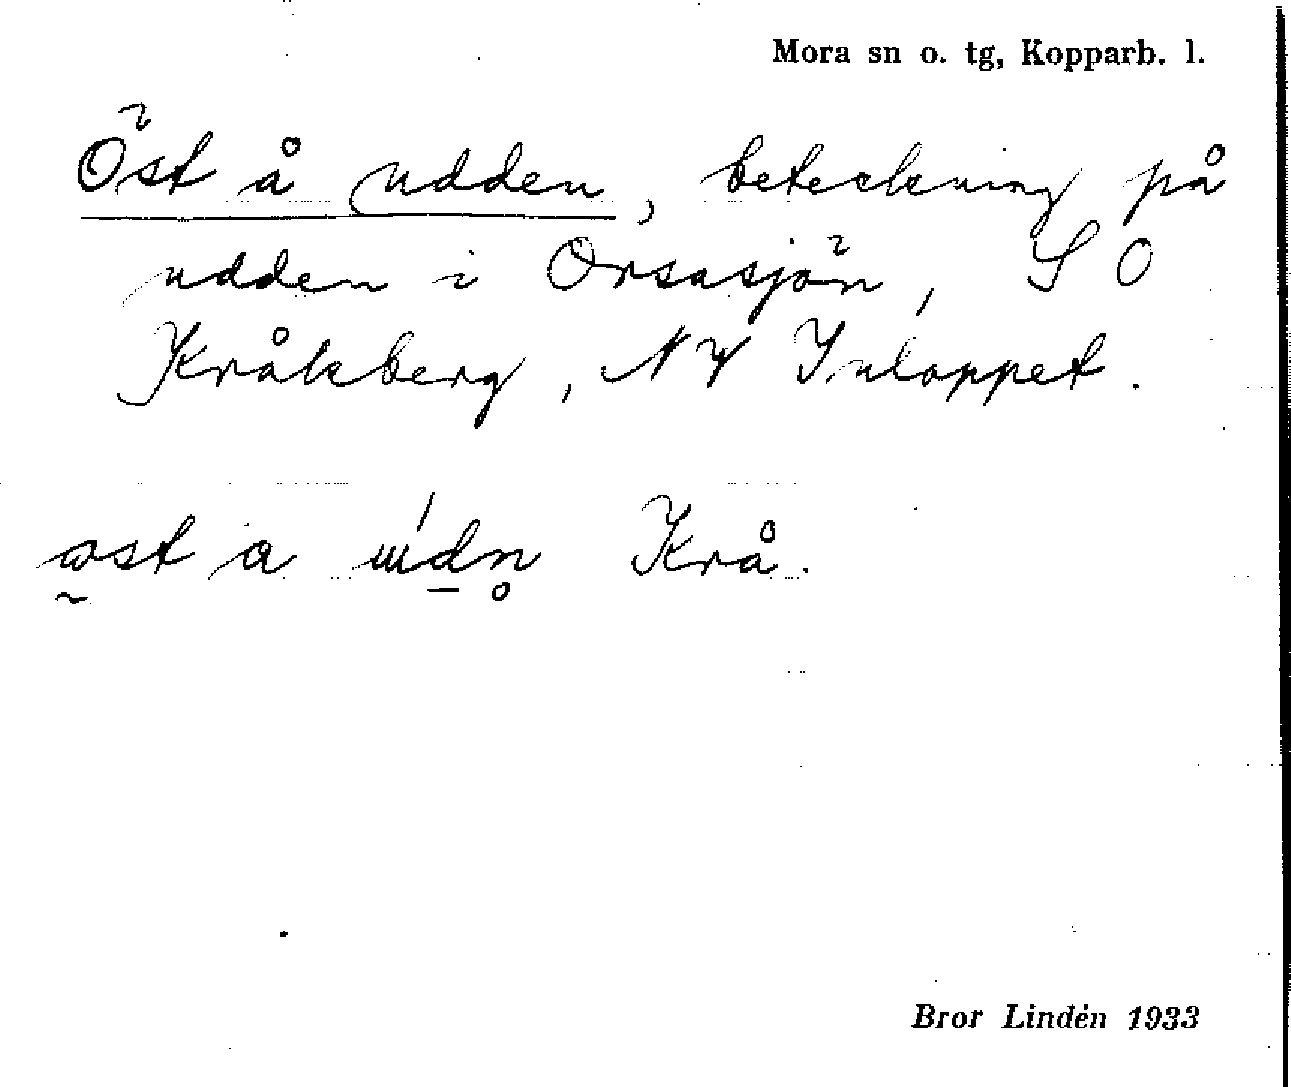 Mora sn o. tg, Kopparb. l.
Öst å udden, beteckning på
udden i Orsasjön, S O
Kråkberg, NV Inloppet.
Krå.
Bror Lindén 1933